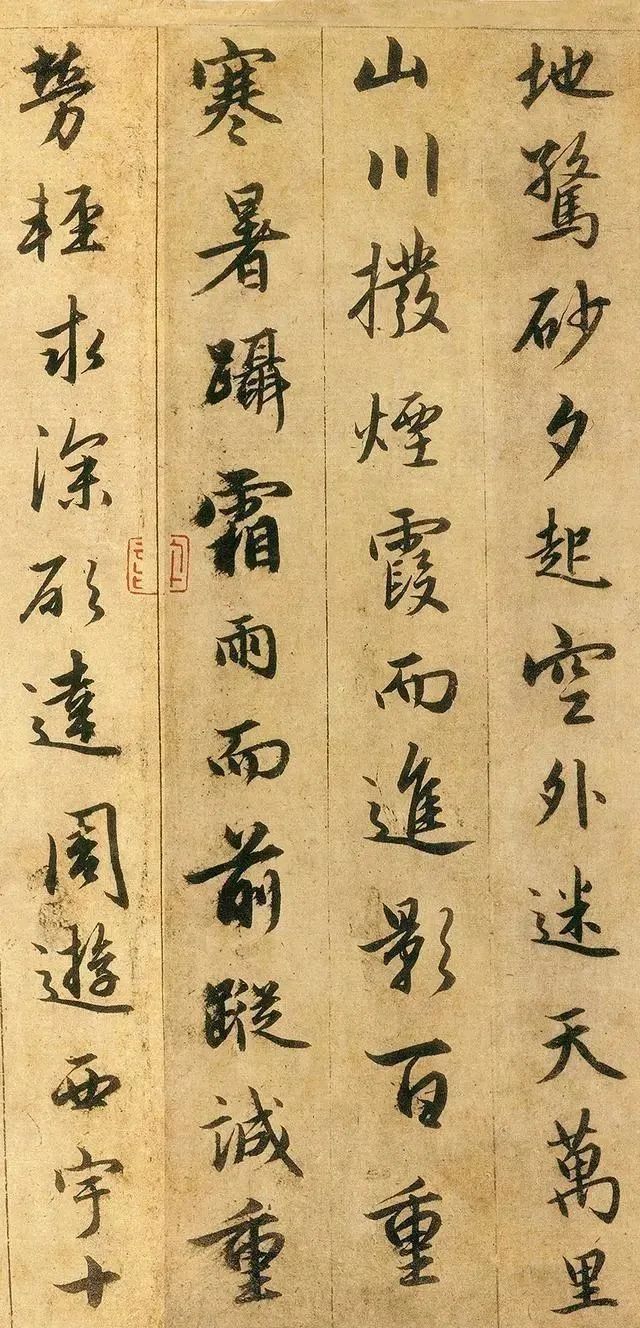 地驚砂夕起空外迷天萬里
山川撥煙霞而進影百重
寒暑躡霜雨而前蹤誠重
勞輕求深願達周遊西宇十